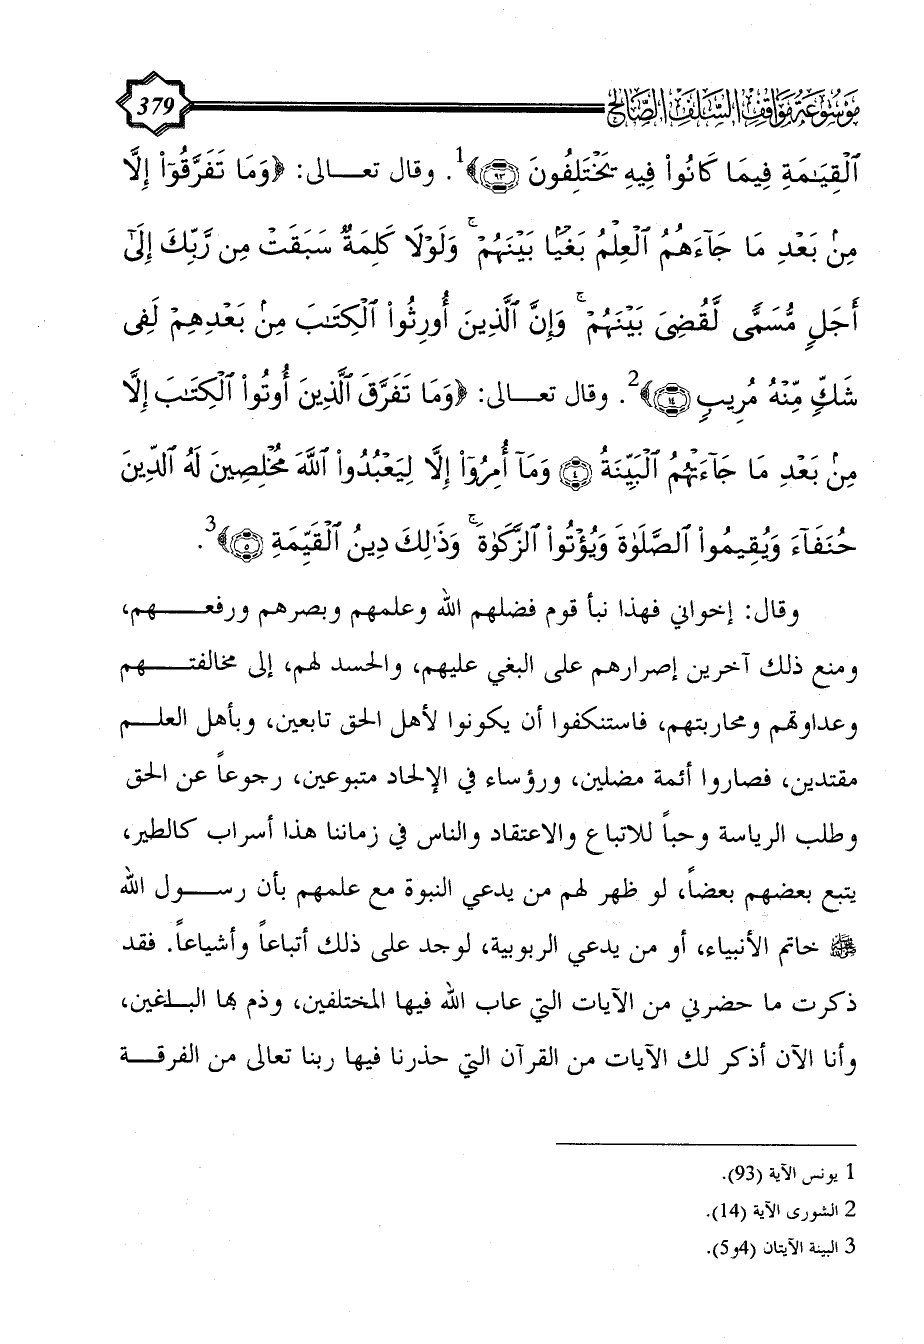 موسوعة مواقف السلف الصالح
379
ٱلْقِيَٰمَةِ فِيمَا كَانُوا۟ فِيهِ يَخْتَلِفُونَ ﴿٩٣﴾﴾1. وقال تعـــالى: ﴿وَمَا تَفَرَّقُوٓا۟ إِلَّا
مِنۢ بَعْدِ مَا جَآءَهُمُ ٱلْعِلْمُ بَغْيًۢا بَيْنَهُمْ ۚ وَلَوْلَا كَلِمَةٌ سَبَقَتْ مِن رَّبِّكَ إِلَىٰٓ
أَجَلٍ مُّسَمًّى لَّقُضِىَ بَيْنَهُمْ ۚ وَإِنَّ ٱلَّذِينَ أُورِثُوا۟ ٱلْكِتَٰبَ مِنۢ بَعْدِهِمْ لَفِى
شَكٍّ مِّنْهُ مُرِيبٍ ﴿١٤﴾﴾2. وقال تعـــالى: ﴿وَمَا تَفَرَّقَ ٱلَّذِينَ أُوتُوا۟ ٱلْكِتَٰبَ إِلَّا
مِنۢ بَعْدِ مَا جَآءَتْهُمُ ٱلْبَيِّنَةُ ﴿٤﴾ وَمَآ أُمِرُوٓا۟ إِلَّا لِيَعْبُدُوا۟ ٱللَّهَ مُخْلِصِينَ لَهُ ٱلدِّينَ
حُنَفَآءَ وَيُقِيمُوا۟ ٱلصَّلَوٰةَ وَيُؤْتُوا۟ ٱلزَّكَوٰةَ ۚ وَذَٰلِكَ دِينُ ٱلْقَيِّمَةِ ﴿٥﴾﴾3.
وقال: إخواني فهذا نبأ قوم فضلهم الله وعلمهم وبصرهم ورفعــــهم،
ومنع ذلك آخرين إصرارهم على البغي عليهم، والحسد لهم، إلى مخالفتــــهم
وعداوتهم ومحاربتهم، فاستنكفوا أن يكونوا لأهل الحق تابعين، وبأهل العلــم
مقتدين، فصاروا أئمة مضلين، ورؤساء في الإلحاد متبوعين، رجوعاً عن الحق
وطلب الرياسة وحباً للاتباع والاعتقاد والناس في زماننا هذا أسراب كالطير،
يتبع بعضهم بعضاً، لو ظهر لهم من يدعي النبوة مع علمهم بأن رســول الله
ﷺ خاتم الأنبياء، أو من يدعي الربوبية، لوجد على ذلك أتباعاً وأشياعاً. فقد
ذكرت ما حضرني من الآيات التي عاب الله فيها المختلفين، وذم بها البــاغين،
وأنا الآن أذكر لك الآيات من القرآن التي حذرنا فيها ربنا تعالى من الفرقــة
1 يونس الآية (93).
2 الشورى الآية (14).
3 البينة الآيتان (4و5).